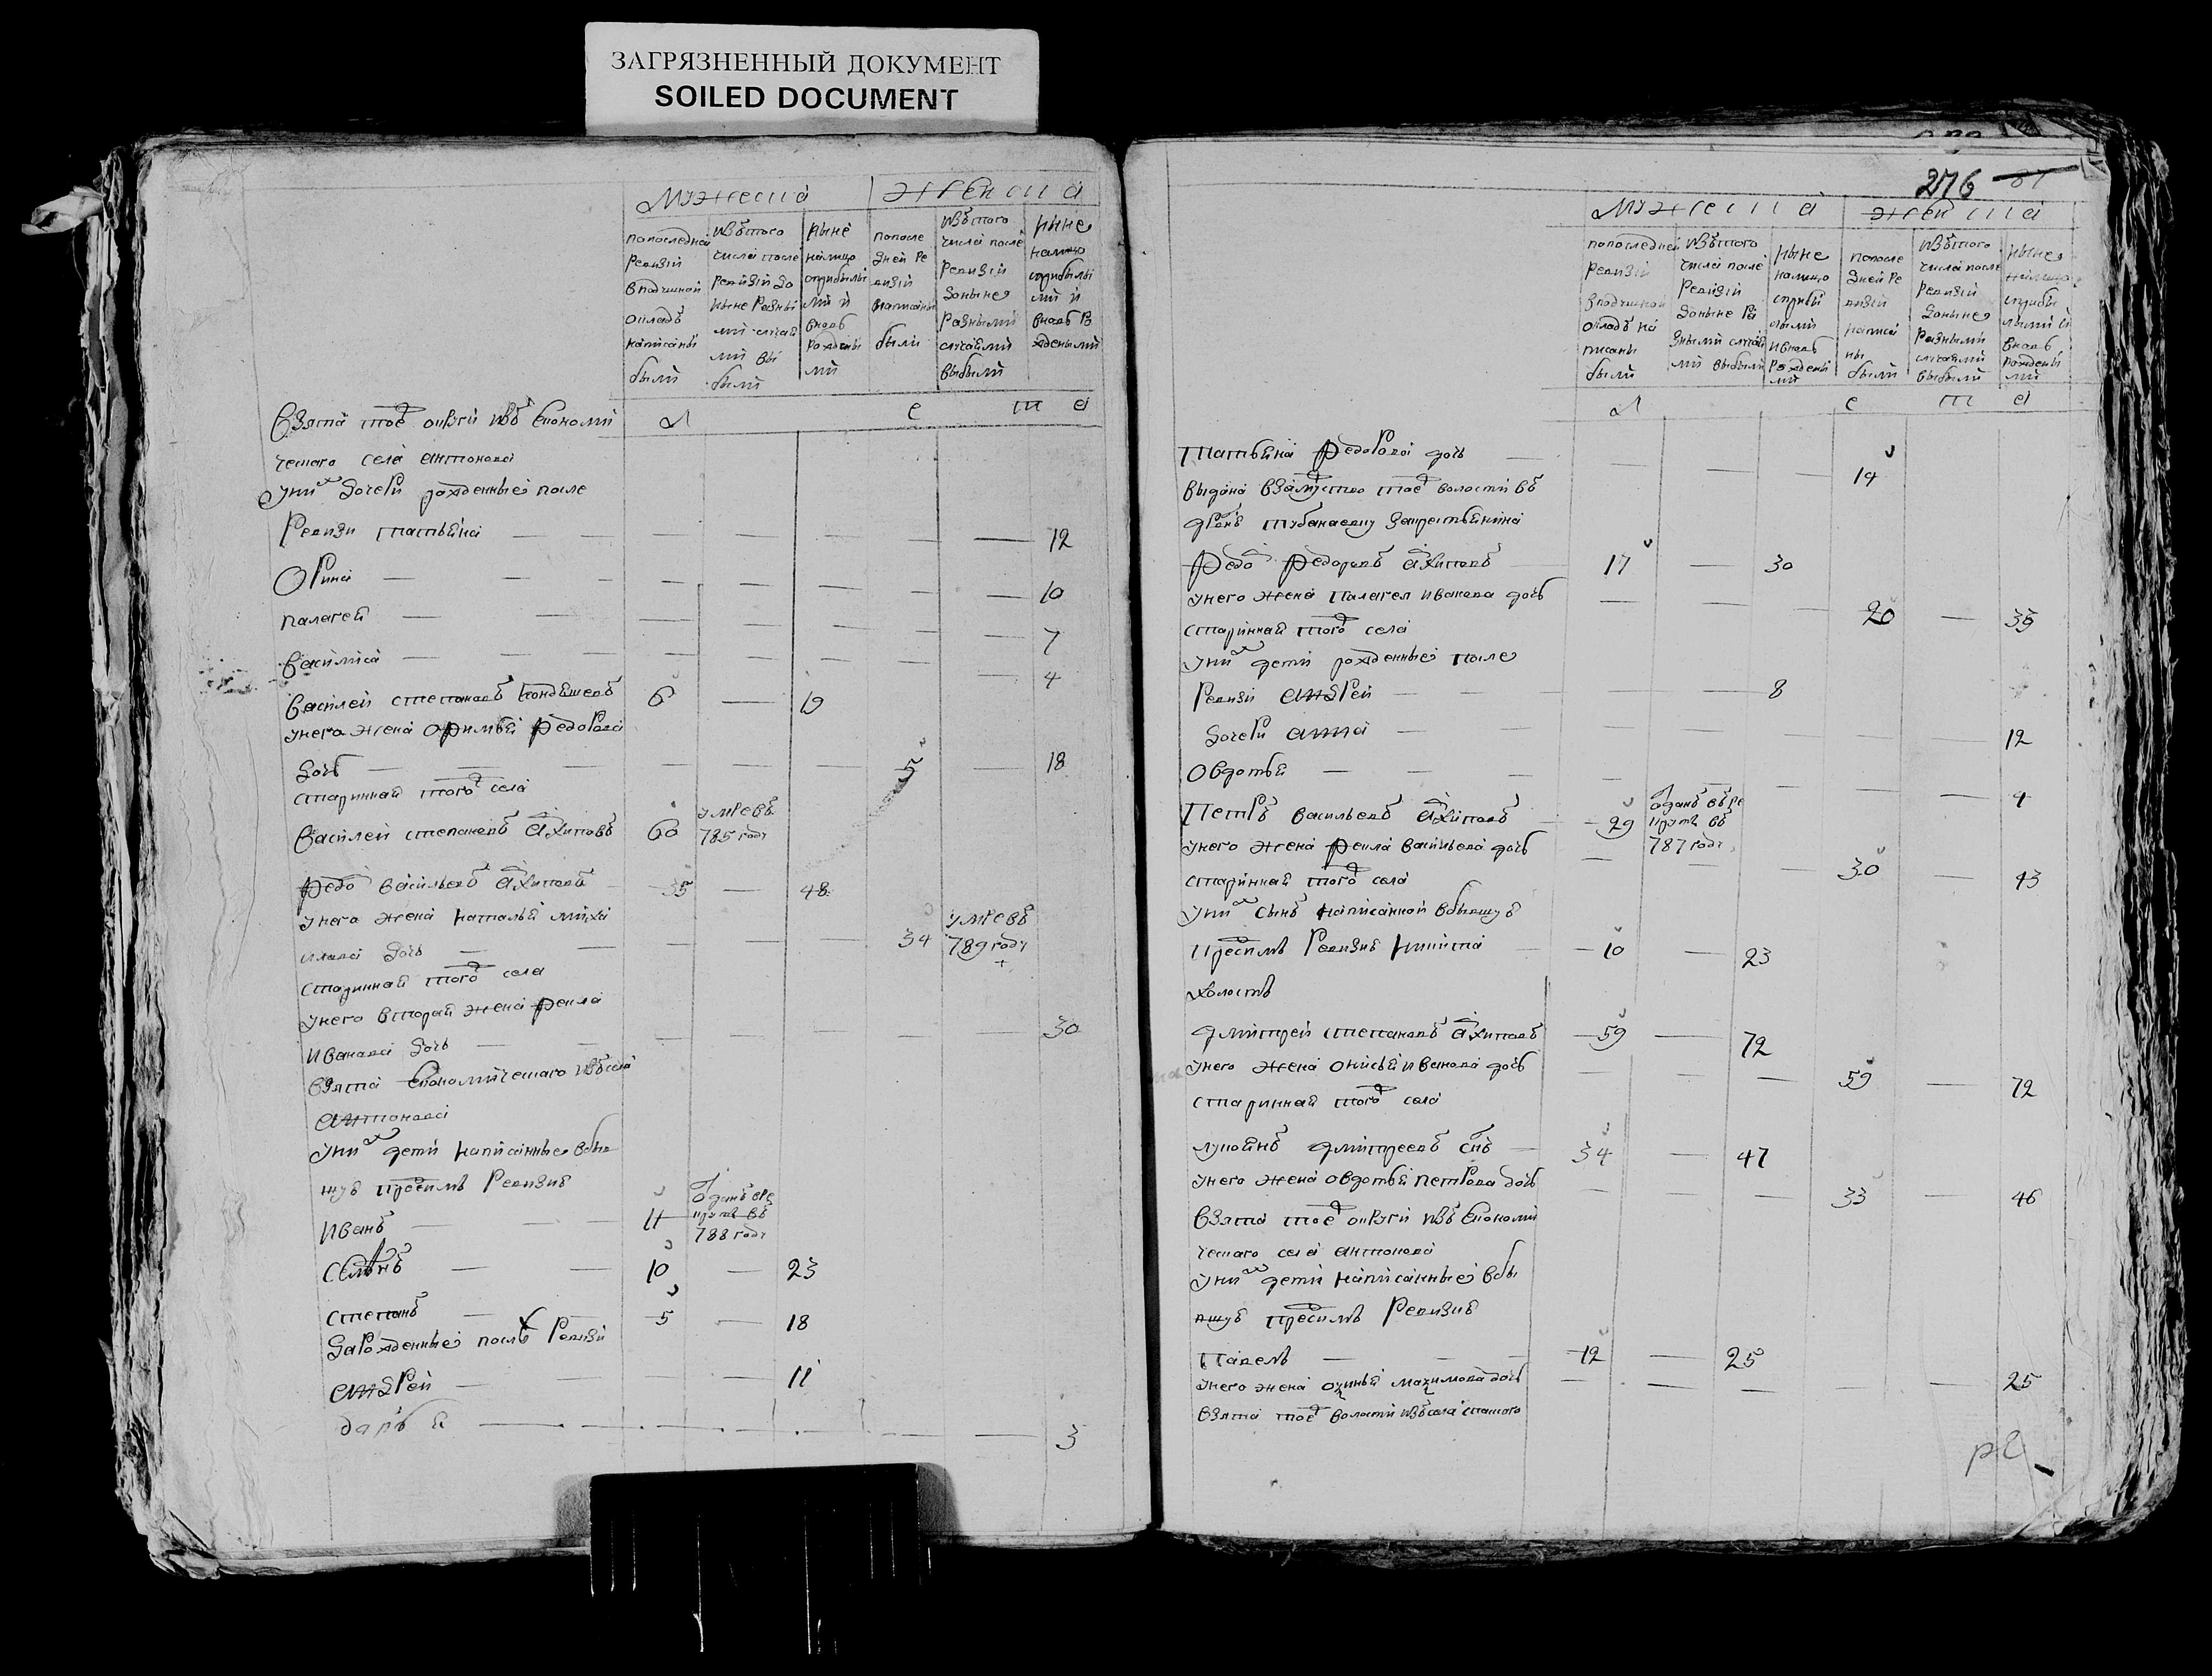 ЗАГРЯЗНЕННЫЙ ДОКУМЕНТ
SOILED DOCUMENT
мужеска женска
попоследней ревизии вподушной окладъ написаны были
изътого числа после ревизии до ныне разными случаями выбыли
ныне налицо сприбылыми и вновь рождеными
попоследней ревизии написаны были
изътого числа после ревизии доныне разными случаями выбыли
ныне налицо сприбылыми и вновь рождеными
л е т а
взята тое округи изъ економи
ческаго села антонова
уних дочери рожденные после
ревизи татьяна — 12
Орина — 10
палагея — 7
василиса — 4
василей степановъ 6 — 19
унего жена офимья федорова
дочь — 5 — 18
стариннай того села
василей степановъ архиповъ 60 умревъ 785 году
федо васильевъ архиповъ 35 — 48
унего жена наталья миха
илава дочь — 34 умре въ 789 году
стариннай того села
унего вторая жена фекла
иванава дочь — 30
взята економическаго изъ села
антонова
уних дети написанные вбы
шую пресимъ ревизию
иванъ — 11 отданъ врекруты въ 788 году
семенъ — 10 — 23
степанъ — 5 — 18
зарожденные послѣ ревизи
андрей — 11
дарья — 3
276 87
мужеска женска
попоследней ревизии вподушной окладъ написаны были
изътого числа после ревизии доныне разными случаями выбыли
ныне налицо сприбылыми ивновь рождеными
попоследней ревизии написаны были
изътого числа после ревизии доныне разными случаями выбыли
ныне налицо сприбылыми и вновь рождеными
л е т а
татьяна федорова дочь — 14
выдана взамуство тое волости въ
дрвнъ тубанаевку закрестьянина
федо федоровъ архиповъ 17 — 30
унего жена палагея иванова дочь — 20 — 33
стариннай того села
уних дети рожденные после
ревизи андрей — 8
дочери анна — 12
Овдотья — 4
Петръ васильевъ архиповъ 29 отданъ въ рекруты въ 787 году
унего жена фекла васильева дочь — 30 — 43
стариннай того села
уних сынъ написанной вбывшую
пресимъ ревизию никита — 10 — 23
холостъ
дмитрей степановъ архиповъ 59 — 72
унего жена онисья иванова дочь — 59 — 72
стариннай того села
лукоянъ дмитреевъ снъ 34 — 47
унего жена овдотья петрова дочь — 33 — 46
взята тое округи изъ економи
ческаго села антонова
уних дети написанные вбы
вшую пресимъ ревизию
павелъ — 12 — 25
унего жена махимова дочь — 25
взята тое волости изъ села спаскаго